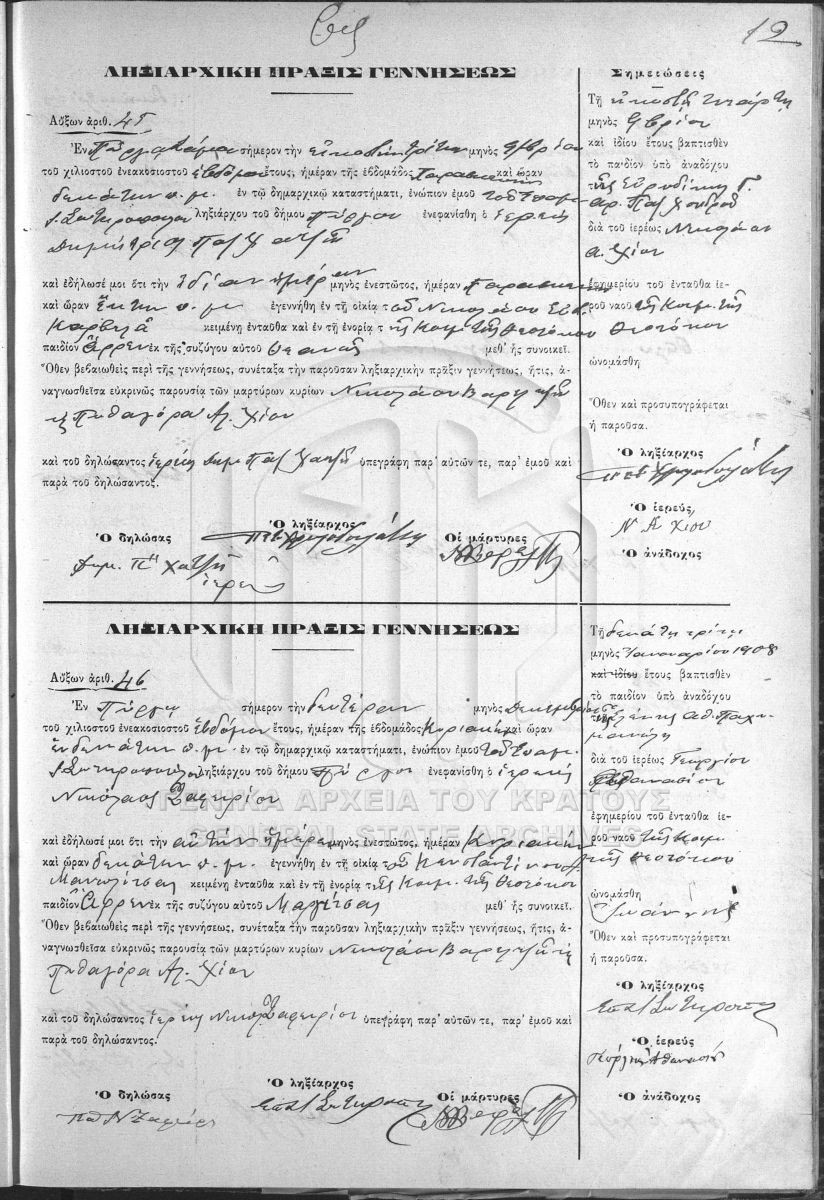 12
ΛΗΞΙΑΡΧΙΚΗ ΠΡΑΞΙΣ ΓΕΝΝΗΣΕΩΣ
Αὔξων ἀριθ. 45
Ἐν σήμερον τὴν εἰκοστὴν τρίτην μηνὸς
τοῦ χιλιοστοῦ ἐνεακοσιοστοῦ ἑβδόμου ἔτους, ἡμέραν τῆς ἑβδομάδος Παρασκευὴν καὶ ὥραν
δεκάτην π.μ. ἐν τῷ δημαρχικῷ καταστήματι, ἐνώπιον ἐμοῦ τοῦ
Σωτηροπούλου ληξιάρχου τοῦ δήμου Πύργου ἐνεφανίσθη ὁ ἱερεὺς
Δημήτριος Παπ Χατζῆ
καὶ ἐδήλωσέ μοι ὅτι τὴν ἰδίαν ἡμέραν μηνὸς ἐνεστῶτος, ἡμέραν Παρασκευὴν
καὶ ὥραν ἕκτην π.μ. ἐγεννήθη ἐν τῇ οἰκίᾳ τοῦ Νικολάου
Καρβελᾶ κειμένῃ ἐνταῦθα καὶ ἐν τῇ ἐνορίᾳ τῆς Κοιμ. τῆς Θεοτόκου
παιδίον Ἄρρεν ἐκ τῆς συζύγου αὐτοῦ Θεανῶς μεθ' ἧς συνοικεῖ.
Ὅθεν βεβαιωθεὶς περὶ τῆς γεννήσεως, συνέταξα τὴν παροῦσαν ληξιαρχικὴν πρᾶξιν γεννήσεως, ἥτις, ἀ-
ναγνωσθεῖσα εὐκρινῶς παρουσίᾳ τῶν μαρτύρων κυρίων Νικολάου
Πυθαγόρα Αλ. Χίου
καὶ τοῦ δηλώσαντος ἱερέως Δημ. Παπ Χατζῆ ὑπεγράφη παρ' αὐτῶν τε, παρ' ἐμοῦ καὶ
παρὰ τοῦ δηλώσαντος.
Ὁ δηλώσας Ὁ ληξίαρχος Οἱ μάρτυρες
Δημ. Π Χατζῆ
ἱερεὺς
Σημειώσεις
Τῇ εἰκοστῇ τετάρτῃ
μηνὸς
καὶ ἰδίου ἔτους βαπτισθὲν
τὸ παιδίον ὑπὸ ἀναδόχου
τῆς Εὐρυδίκης Γ.
διὰ τοῦ ἱερέως Νικολάου
Α. Χίου
ἐφημερίου τοῦ ἐνταῦθα ἱε-
ροῦ ναοῦ τῆς Κοιμ. τῆς
Θεοτόκου
ὠνομάσθη
Ὅθεν καὶ προσυπογράφεται
ἡ παροῦσα.
Ὁ ληξίαρχος
Ὁ ἱερεύς,
Ν Α Χίου
Ὁ ἀνάδοχος
ΛΗΞΙΑΡΧΙΚΗ ΠΡΑΞΙΣ ΓΕΝΝΗΣΕΩΣ
Αὔξων ἀριθ. 46
Ἐν Πύργῳ σήμερον τὴν δευτέραν μηνὸς Δεκεμβρίου
τοῦ χιλιοστοῦ ἐνεακοσιοστοῦ ἑβδόμου ἔτους, ἡμέραν τῆς ἑβδομάδος Κυριακὴν καὶ ὥραν
ἑνδεκάτην π.μ. ἐν τῷ δημαρχικῷ καταστήματι, ἐνώπιον ἐμοῦ τοῦ
Σωτηροπούλου ληξιάρχου τοῦ δήμου Πύργου ἐνεφανίσθη ὁ ἱερεὺς
Νικόλαος Ζαφειρίου
καὶ ἐδήλωσέ μοι ὅτι τὴν αὐτὴν ἡμέραν μηνὸς ἐνεστῶτος, ἡμέραν Κυριακὴν
καὶ ὥραν δεκάτην π.μ. ἐγεννήθη ἐν τῇ οἰκίᾳ τοῦ Κωνσταντίνου
Μανωλίτσας κειμένῃ ἐνταῦθα καὶ ἐν τῇ ἐνορίᾳ τῆς Κοιμ. τῆς Θεοτόκου
παιδίον Ἄρρεν ἐκ τῆς συζύγου αὐτοῦ Μαργίτσας μεθ' ἧς συνοικεῖ.
Ὅθεν βεβαιωθεὶς περὶ τῆς γεννήσεως, συνέταξα τὴν παροῦσαν ληξιαρχικὴν πρᾶξιν γεννήσεως, ἥτις, ἀ-
ναγνωσθεῖσα εὐκρινῶς παρουσίᾳ τῶν μαρτύρων κυρίων Νικολάου
Πυθαγόρα Αλ. Χίου
καὶ τοῦ δηλώσαντος ἱερέως Νικολ. Ζαφειρίου ὑπεγράφη παρ' αὐτῶν τε, παρ' ἐμοῦ καὶ
παρὰ τοῦ δηλώσαντος.
Ὁ δηλώσας Ὁ ληξίαρχος Οἱ μάρτυρες
Τῇ δεκάτῃ τρίτῃ
μηνὸς Ἰανουαρίου 1908
καὶ ἰδίου ἔτους βαπτισθὲν
τὸ παιδίον ὑπὸ ἀναδόχου
διὰ τοῦ ἱερέως Γεωργίου
Ἀθανασίου
ἐφημερίου τοῦ ἐνταῦθα ἱε-
ροῦ ναοῦ τῆς Κοιμ.
τῆς Θεοτόκου
ὠνομάσθη
Ἰωάννης
Ὅθεν καὶ προσυπογράφεται
ἡ παροῦσα.
Ὁ ληξίαρχος
Ὁ ἱερεύς
Γεώργιος Ἀθανασίου
Ὁ ἀνάδοχος
ΓΕΝΙΚΑ ΑΡΧΕΙΑ ΤΟΥ ΚΡΑΤΟΥΣ
GENERAL STATE ARCHIVES